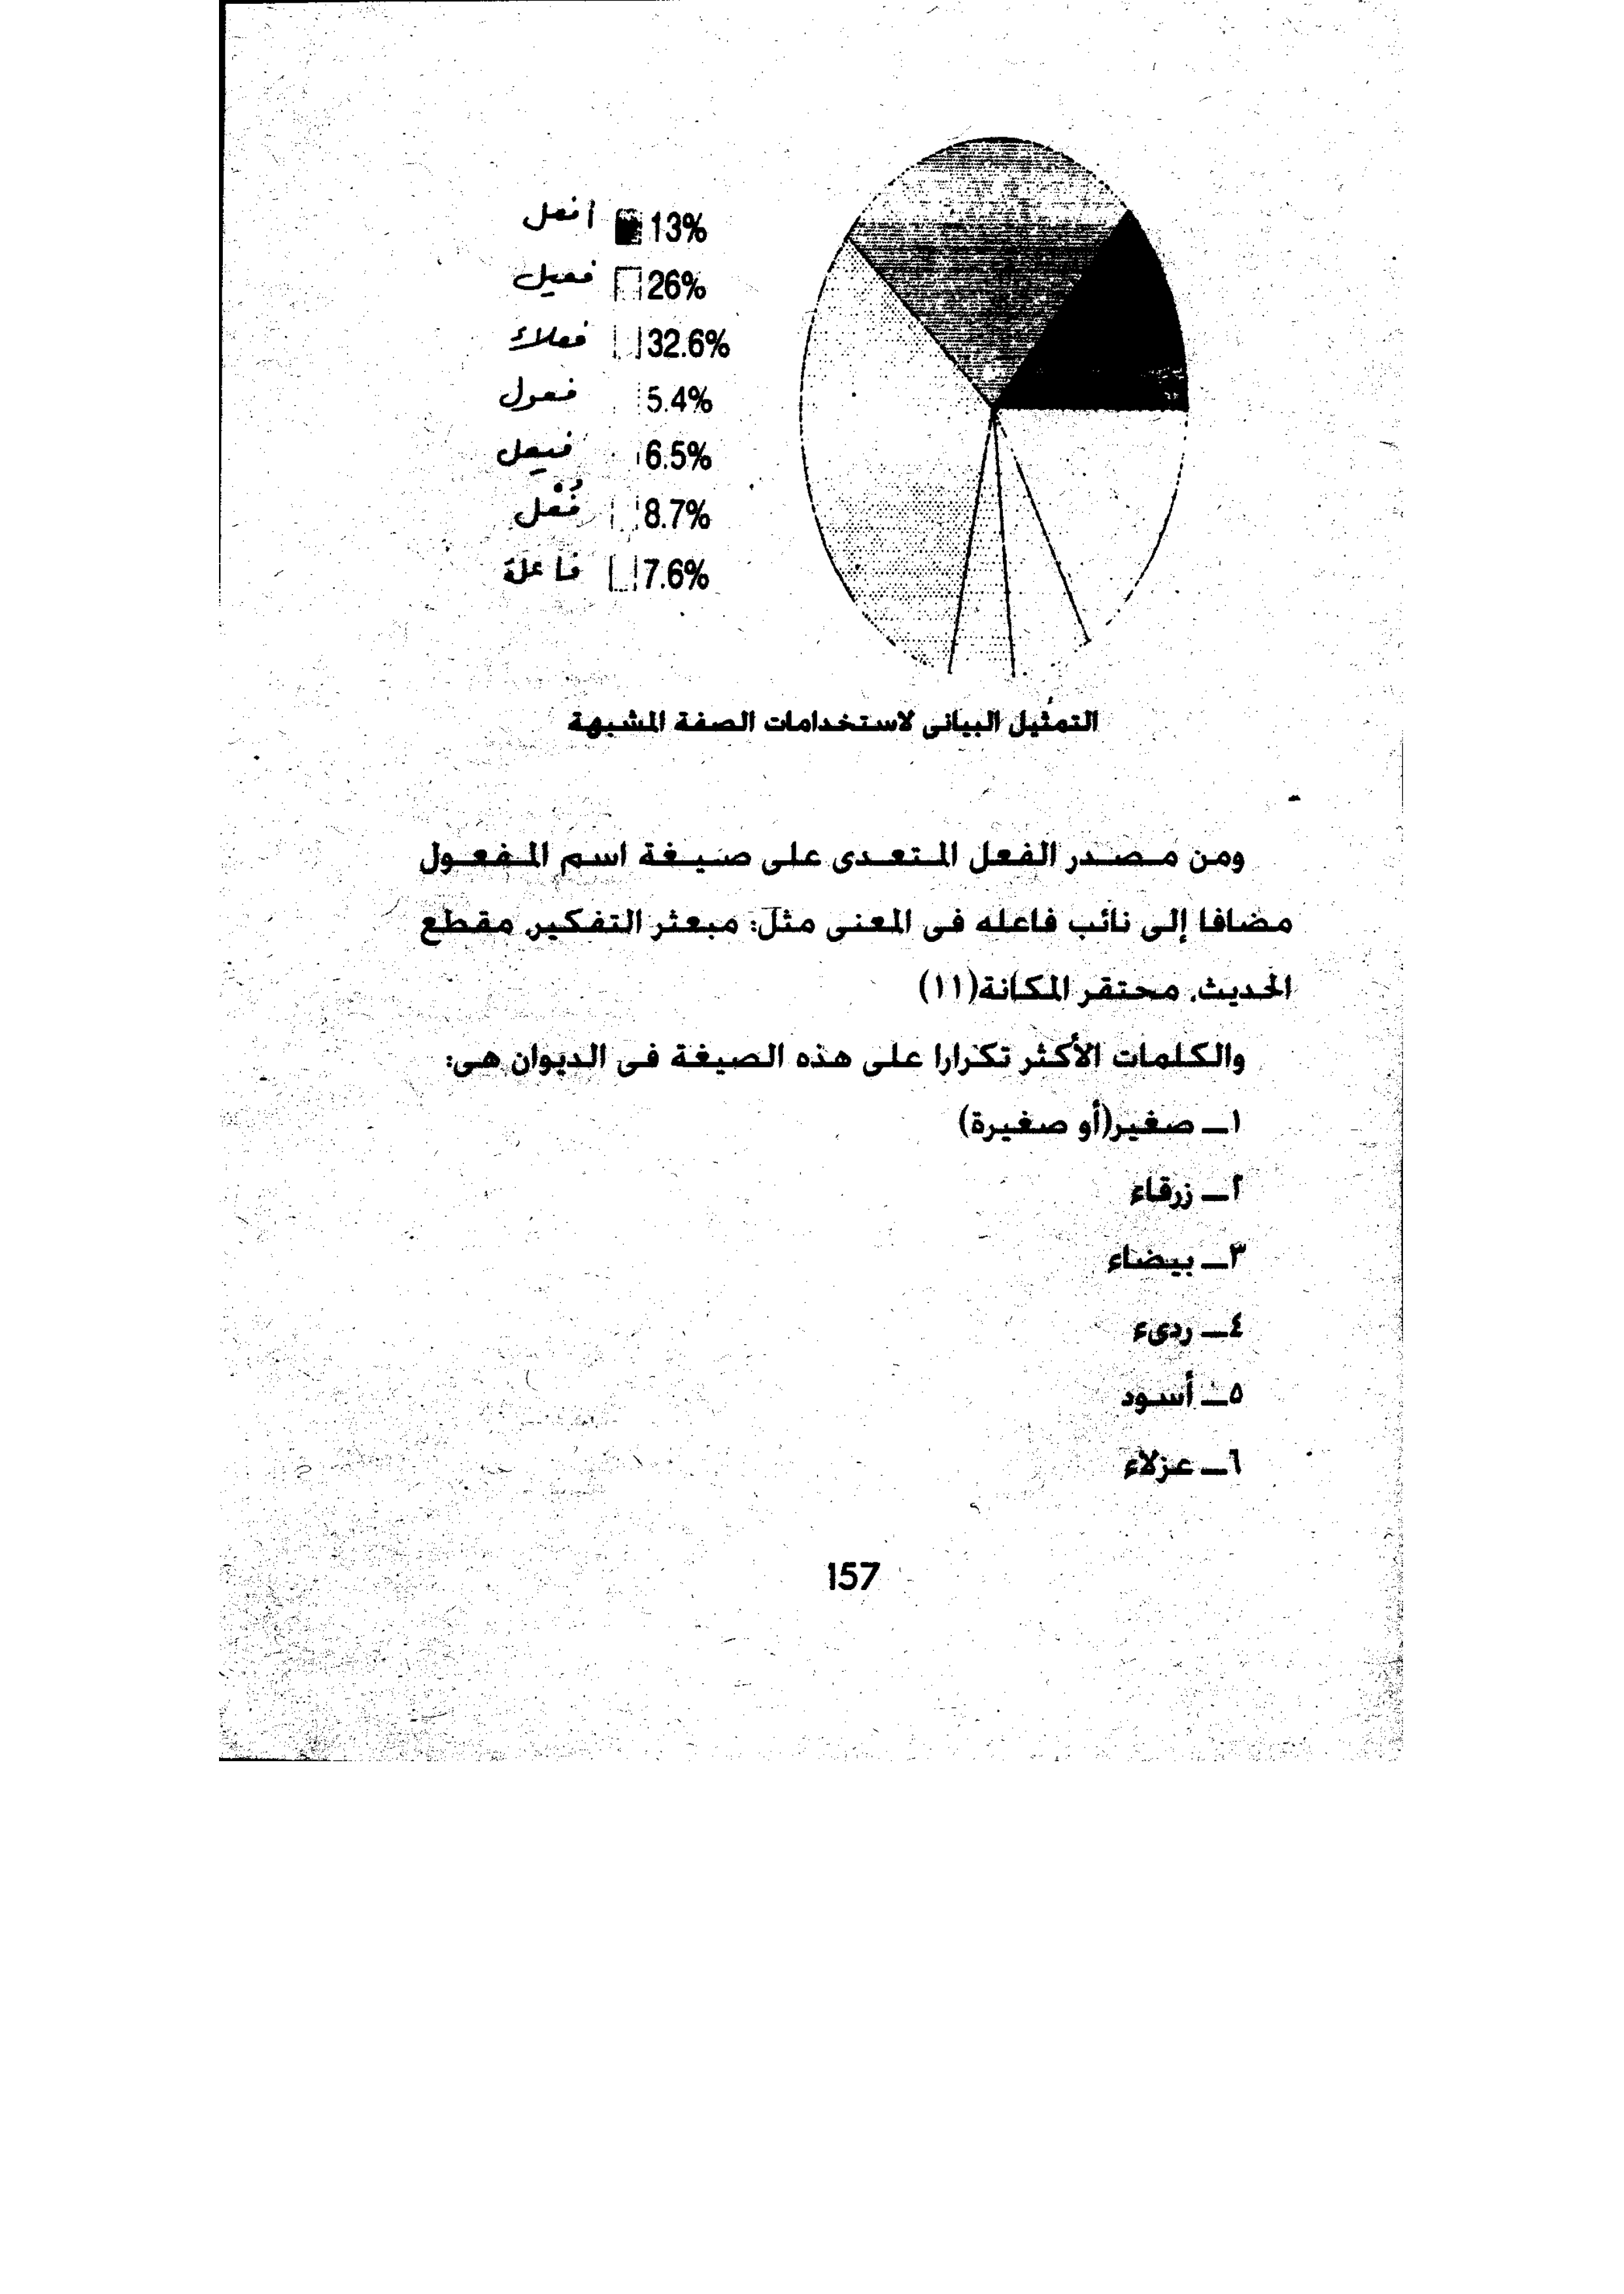 أفعل 13%
فعيل 26%
فعلاء 32.6%
فعول 5.4%
فيعل 6.5%
فُعْل 8.7%
فاعلة 7.6%
التمثيل البيانى لاستخدامات الصفة المشبهة
ومن مصدر الفعل المتعدى على صيغة اسم المفعول
مضافا إلى نائب فاعله فى المعنى مثل: مبعثر التفكير، مقطع
الحديث، محتقر المكانة(١١)
والكلمات الأكثر تكرارا على هذه الصيغة فى الديوان هى:
١ــ صغير(أو صغيرة)
٢ــ زرقاء
٣ــ بيضاء
٤ــ ردىء
٥ــ أسود
٦ــ عزلاء
157